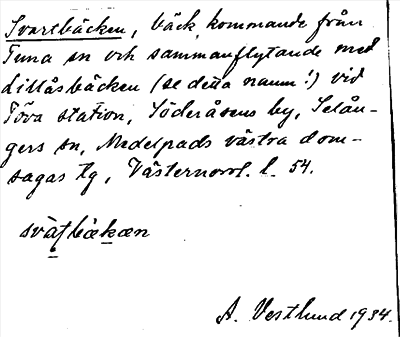 Svartbäcken, bäck, kommande från
Tuna sn och sammanflytande med
Lillåsbäcken (se detta namn!) vid
Töva station, Söderåsens by, Selån-
gers sn, Medelpads västra dom-
sagas tg, Västernorrl. l. 54.
svàʈbækæn
A. Vestlund 1934.